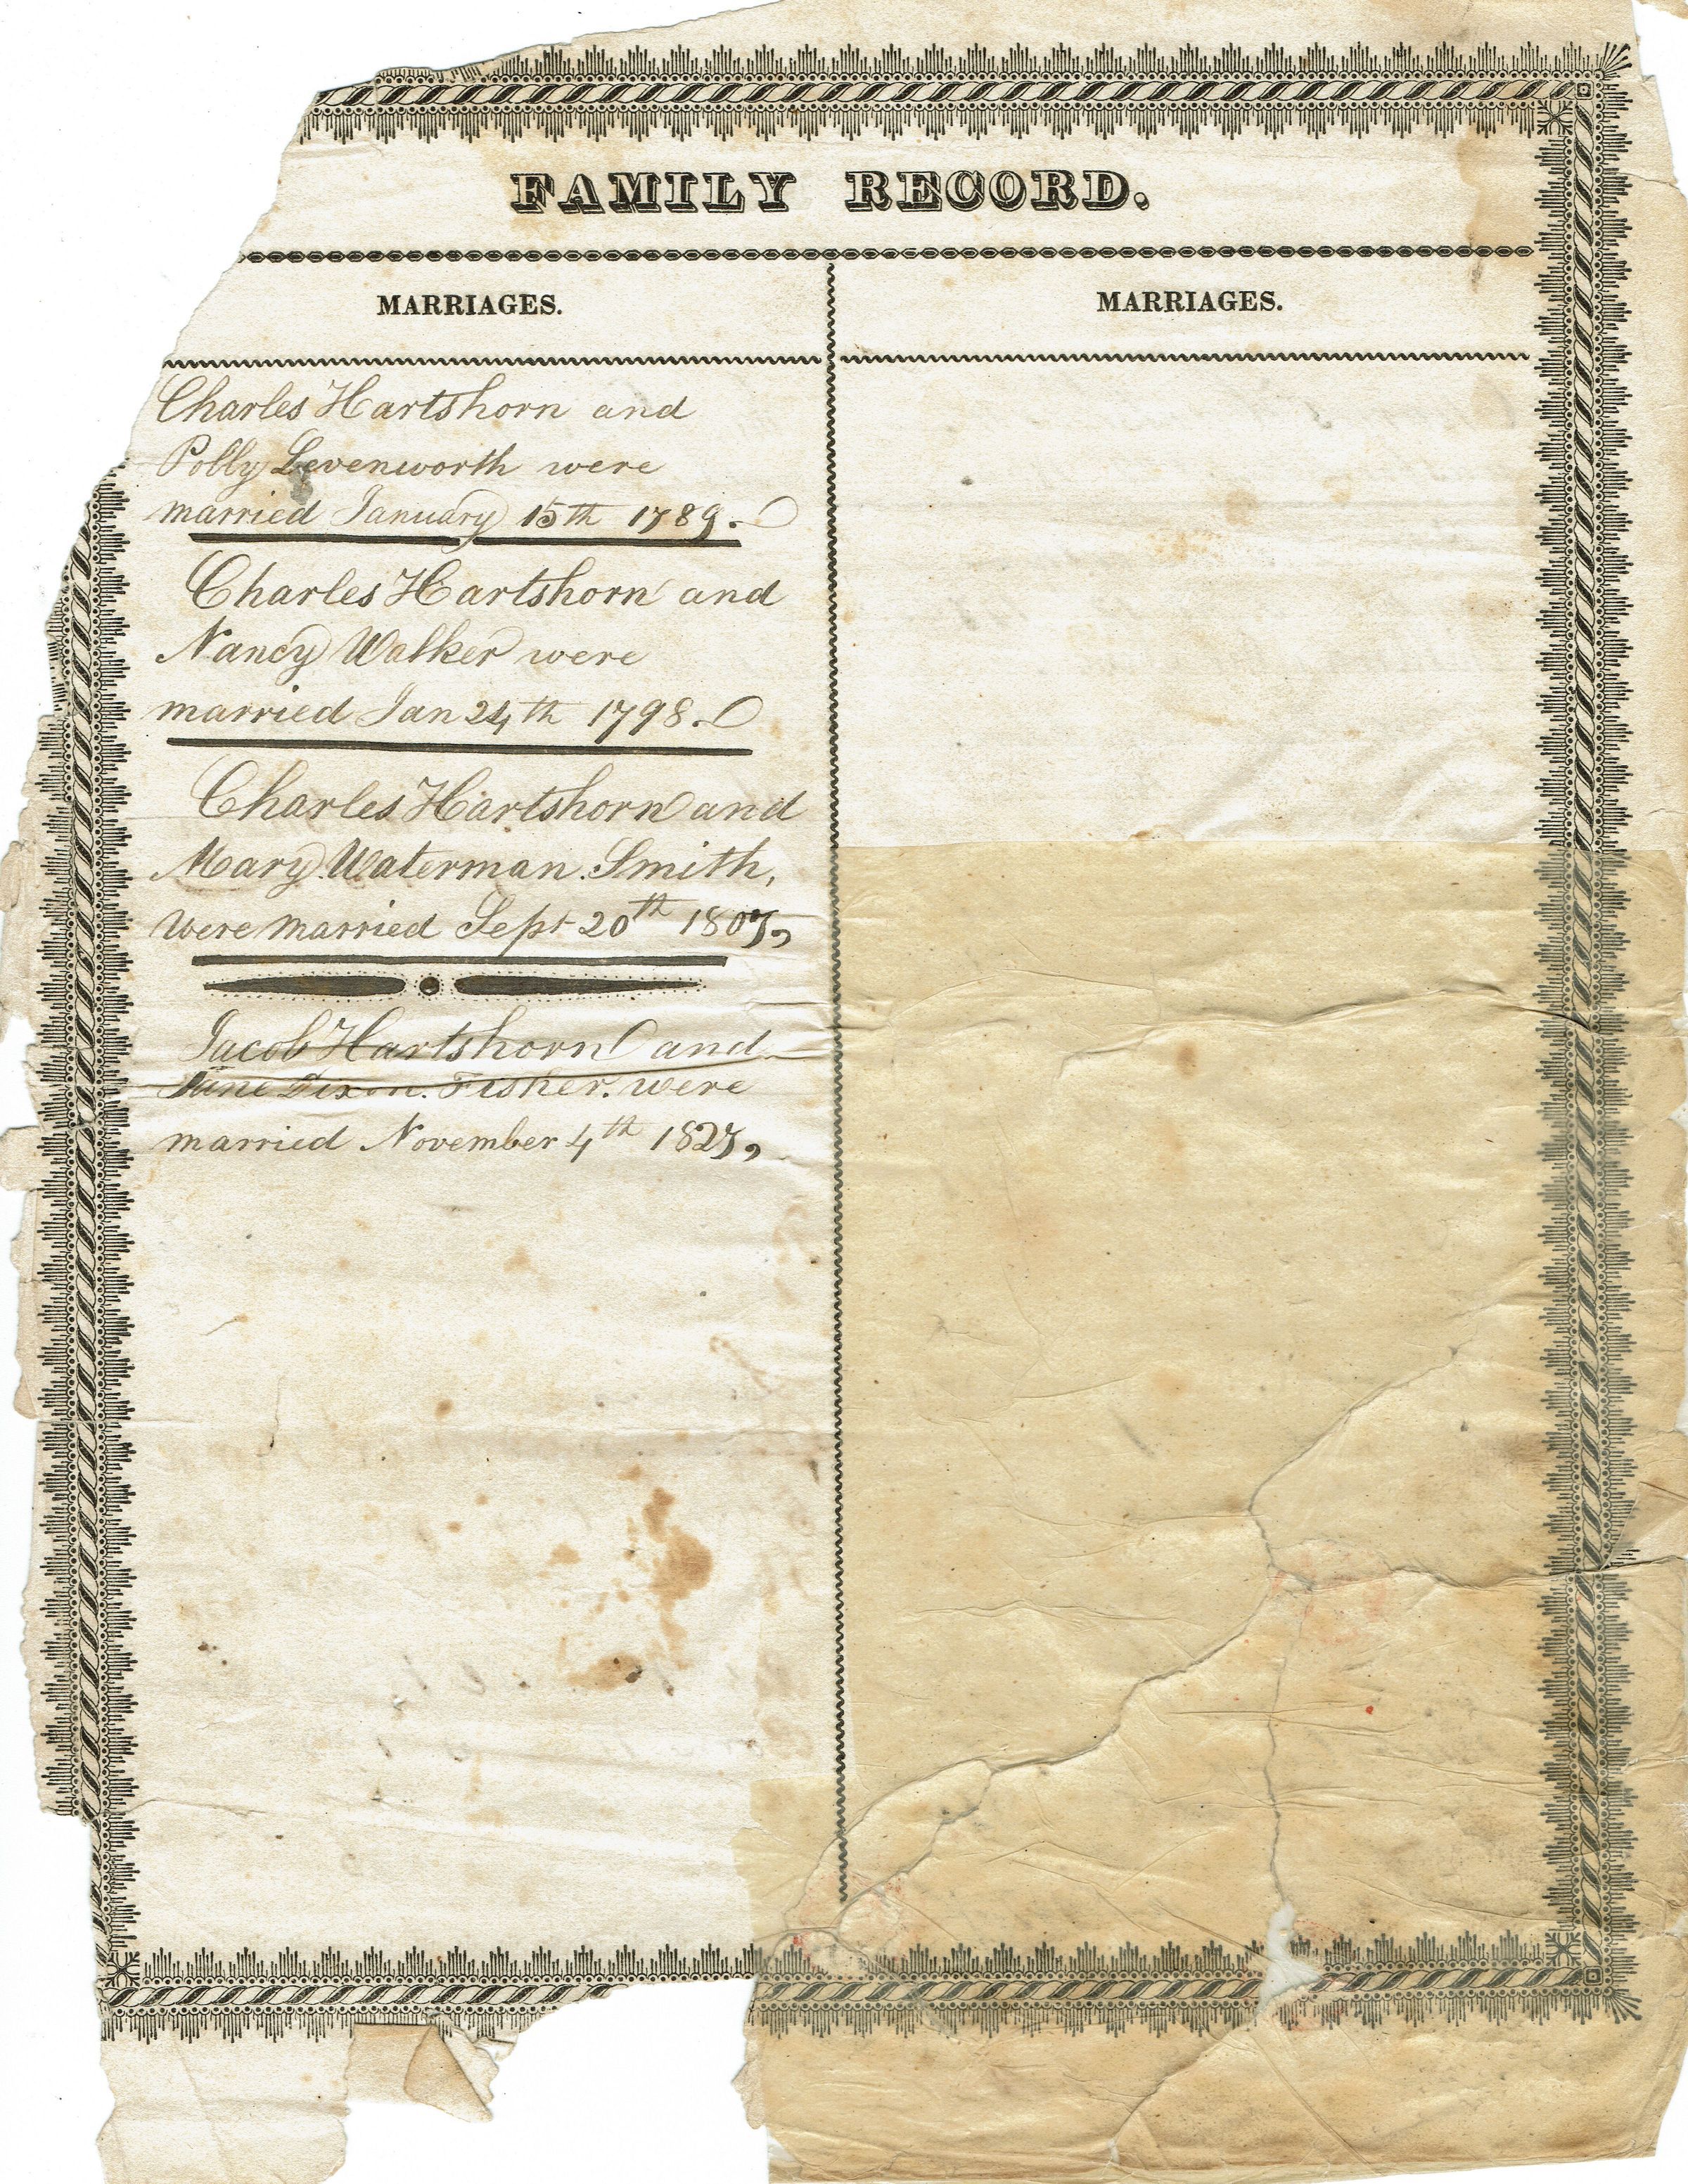 FAMILY RECORD.
MARRIAGES.
Charles Hartshorn and
Polly Levenworth were
married January 15th 1789.
Charles Hartshorn and
Nancy Walker were
married Jan 24th 1798.
Charles Hartshorn and
Mary Waterman Smith,
were married Sept 20th 1807,
Jacob Hartshorn and
Jane Dixon. Fisher. were
married November 4th 1827,
MARRIAGES.